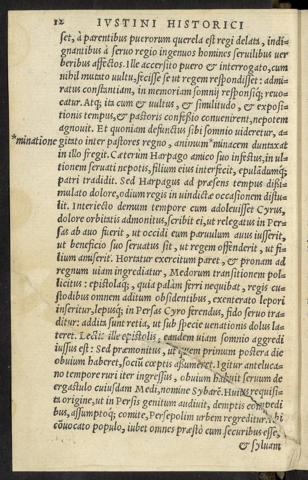 12 IVSTINI HISTORICI
set, à parentibus puerorum querela est regi delata, indi-
gnantibus à seruo regio ingenuos homines seruilibus uer
beribus affectos. Ille accersito puero & interrogato, cum
nihil mutato uultu, fecisse se ut regem respondisset: admi-
ratus constantiam, in memoriam somnij responsiq; reuo-
catur. Atq; ita cum & uultus, & similitudo, & exposi-
tionis tempus, & pastoris confessio conuenirent, nepotem
agnouit. Et quoniam defunctus sibi somnio uideretur, a-
*minatione gitato inter pastores regno, animum *minacem duntaxat
in illo fregit. Cæterùm Harpago amico suo infestus, in ul-
tionem seruati nepotis, filium eius interficit, epulandumq;
patri tradidit. Sed Harpagus ad præsens tempus dissi-
mulato dolore, odium regis in uindictæ occasionem distu-
lit. Interiecto demum tempore cum adoleuisset Cyrus,
dolore orbitatis admonitus, scribit ei, ut relegatus in Per-
sas ab auo fuerit, ut occidi eum paruulum auus iusserit,
ut beneficio suo seruatus sit, ut regem offenderit, ut fi-
lium amiserit. Hortatur exercitum paret, & pronam ad
regnum uiam ingrediatur, Medorum transitionem pol-
licitus: epistolaq;, quia palàm ferri nequibat, regis cu-
stodibus omnem aditum obsidentibus, exenterato lepori
inseritur, lepusq; in Persas Cyro ferendus, fido seruo tra-
ditur: addita sunt retia, ut sub specie uenationis dolus la-
teret. Lectis ille epistolis, eandem uiam somnio aggredi
iussus est: Sed præmonitus, ut quem primum postera die
obuium haberet, sociũ cœptis assumeret. Igitur antelucæ-
no tempore ruri iter ingressus, obuium habuit seruum de
ergastulo cuiusdam Medi, nomine Sybarẽ. Huius requisi-
ta origine, ut in Persis genitum audiuit, demptis compedi
bus, assumptoq; comite, Persepolim urbem regreditur. Ibi
cõuocato populo, iubet omnes præstò cum securibus esse,
& syluam